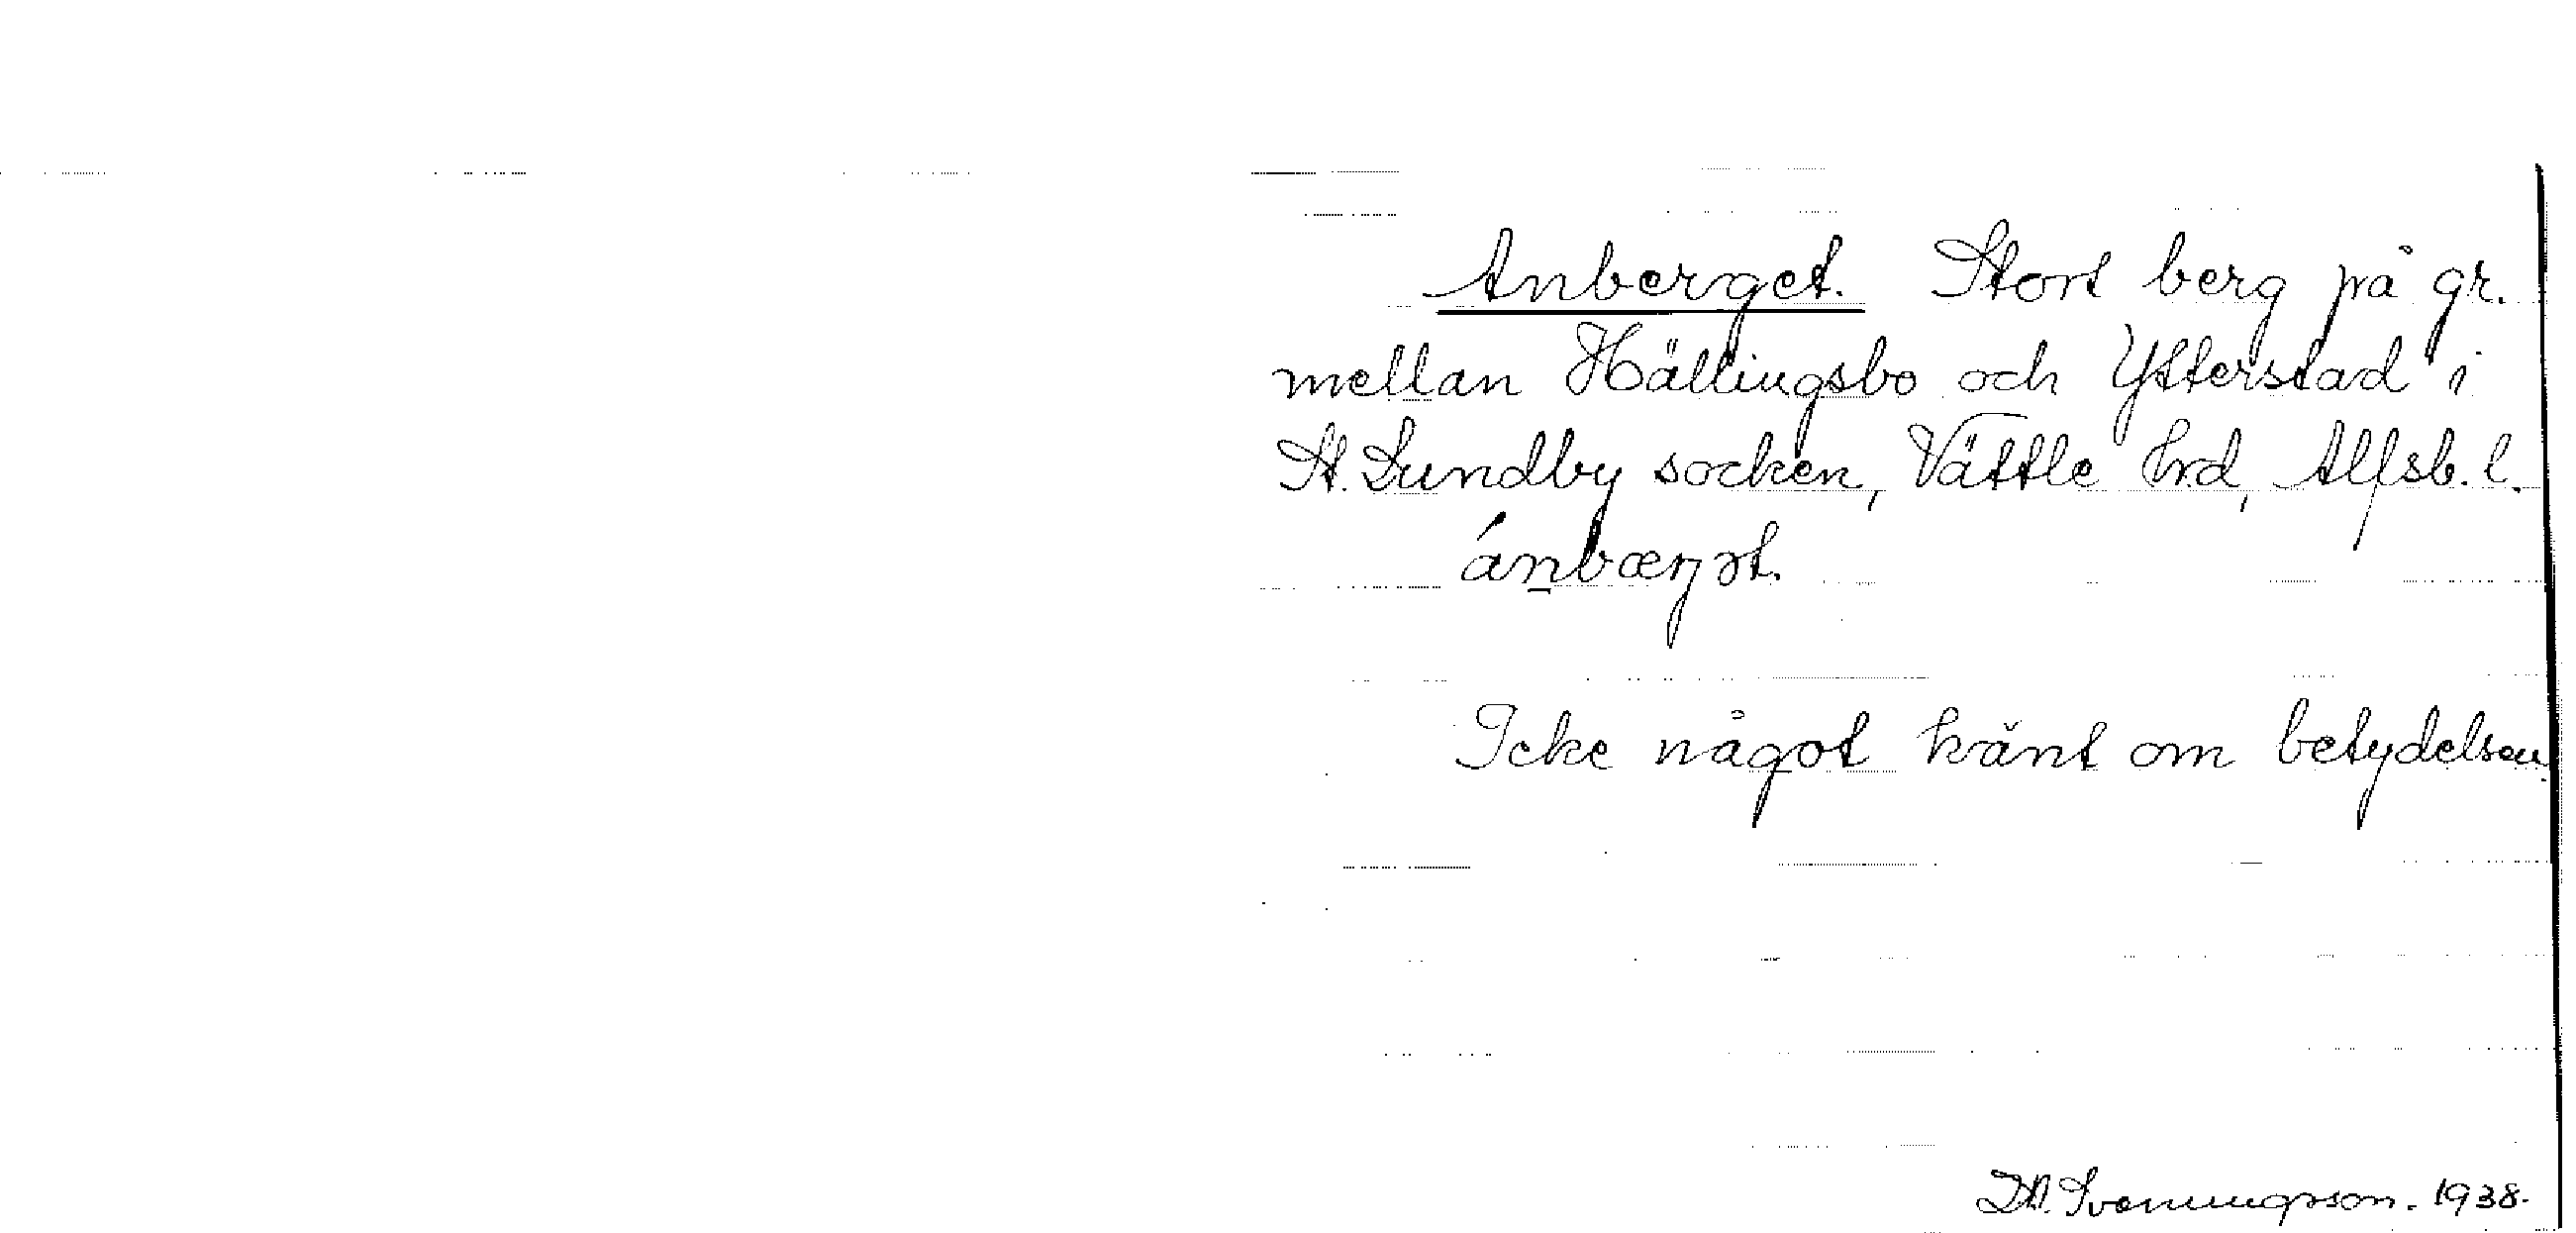 Anberget. Stort berg på gr.
mellan Hällingsbo och Ytterstad i
St. Lundby socken, Vättle hrd, Alfsb. l.
ánbærjət.
Icke något känt om betydelsen.
Svenungsson. 1938.